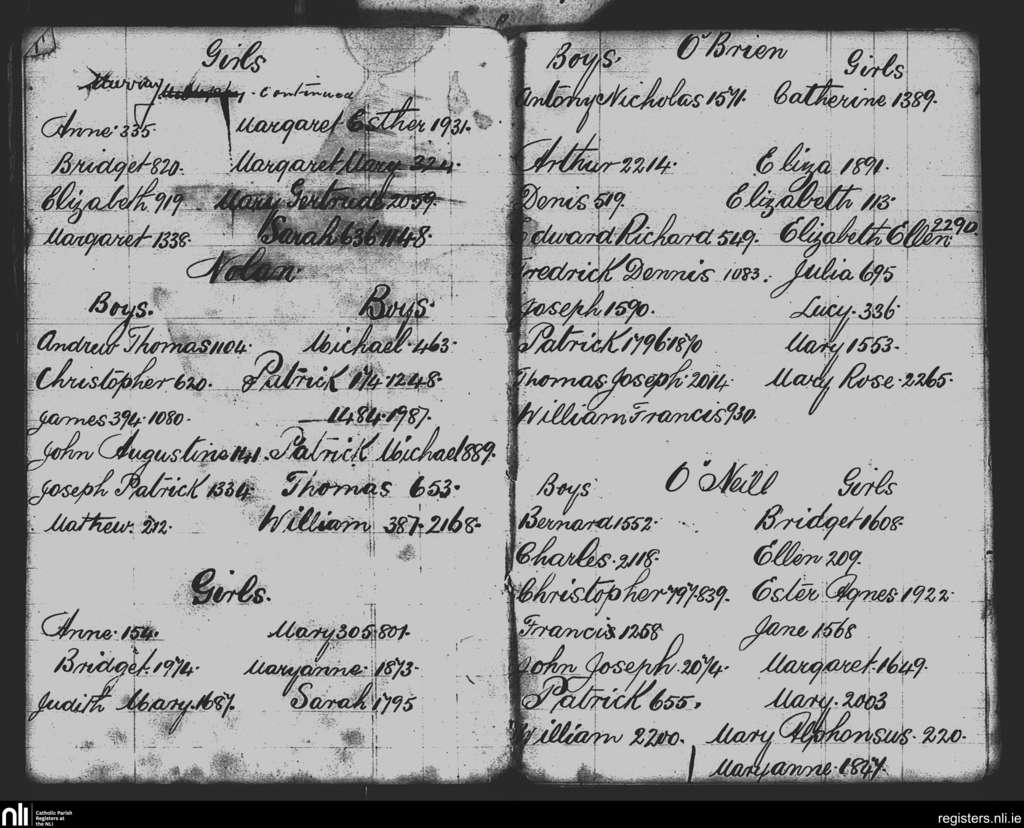 Girls
Murray Continued
Anne 335 Margaret Esther 1931.
Bridget 820. Margaret Mary 324.
Elizabeth 919 Mary Gertrude 2059.
Margaret 1338. Sarah 636.1148.
Nolan.
Boys. Boys.
Andrew Thomas 1104. Michael. 463.
Christopher 620. Patrick 174.1248.
James 394.1080. — 1484.1987.
John Augustine 1141. Patrick Michael 889.
Joseph Patrick 1334. Thomas 653.
Mathew. 212. William 387.2168.
Girls.
Anne. 154. Mary 305.801.
Bridget. 1974. Maryanne. 1873.
Judith Mary. 1687. Sarah 1795
O'Brien
Boys. Girls
Antony Nicholas 1571. Catherine 1389.
Arthur 2214. Eliza 1891.
Denis 519. Elizabeth 113.
Edward Richard 549. Elizabeth Ellen 2290
Fredrick Dennis 1083. Julia 695
Joseph 1590. Lucy. 336
Patrick 1796.1870 Mary 1553.
Thomas Joseph. 2014. Mary Rose. 2265.
William Francis 930.
Boys O'Neill Girls
Bernard 1552. Bridget 1608.
Charles. 2118. Ellen 209.
Christopher 797.839. Ester Agnes. 1922.
Francis 1258 Jane 1568
John Joseph 2074. Margaret. 1649.
Patrick 655. Mary. 2003
William 2200. Mary Alphonsus. 220.
Maryanne. 1847.
nli Catholic Parish
Registers at
the NLI
registers.nli.ie